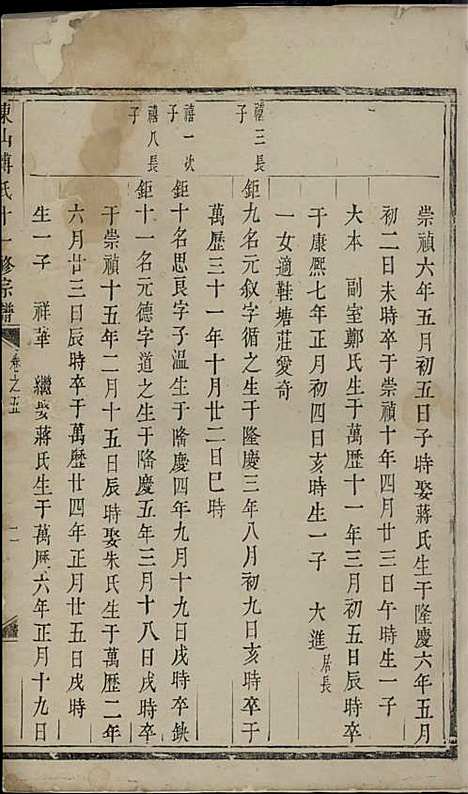 崇禎六年五月初五日子時娶蔣氏生于隆慶六年五月
初二日未時卒于崇禎十年四月廿三日午時生一子
大本　副室鄭氏生于萬歷十一年三月初五日辰時卒
于康熙七年正月初四日亥時生一子　大進居長
一女適鞋塘莊愛奇
禧三長子
鉅九名元叙字循之生于隆慶三年八月初九日亥時卒于
萬歷三十一年十月廿二日巳時
禧一次子
鉅十名思艮字子溫生于隆慶四年九月十九日戌時卒缺
禧八長子
鉅十一名元德字道之生于隆慶五年三月十八日戌時卒
于崇禎十五年二月十五日辰時娶朱氏生于萬歷二年
六月廿三日辰時卒于萬歷廿四年正月廿五日戌時
生一子　祥華　繼娶蔣氏生于萬歷六年正月十九日
東山傅氏十一修宗譜
卷之五